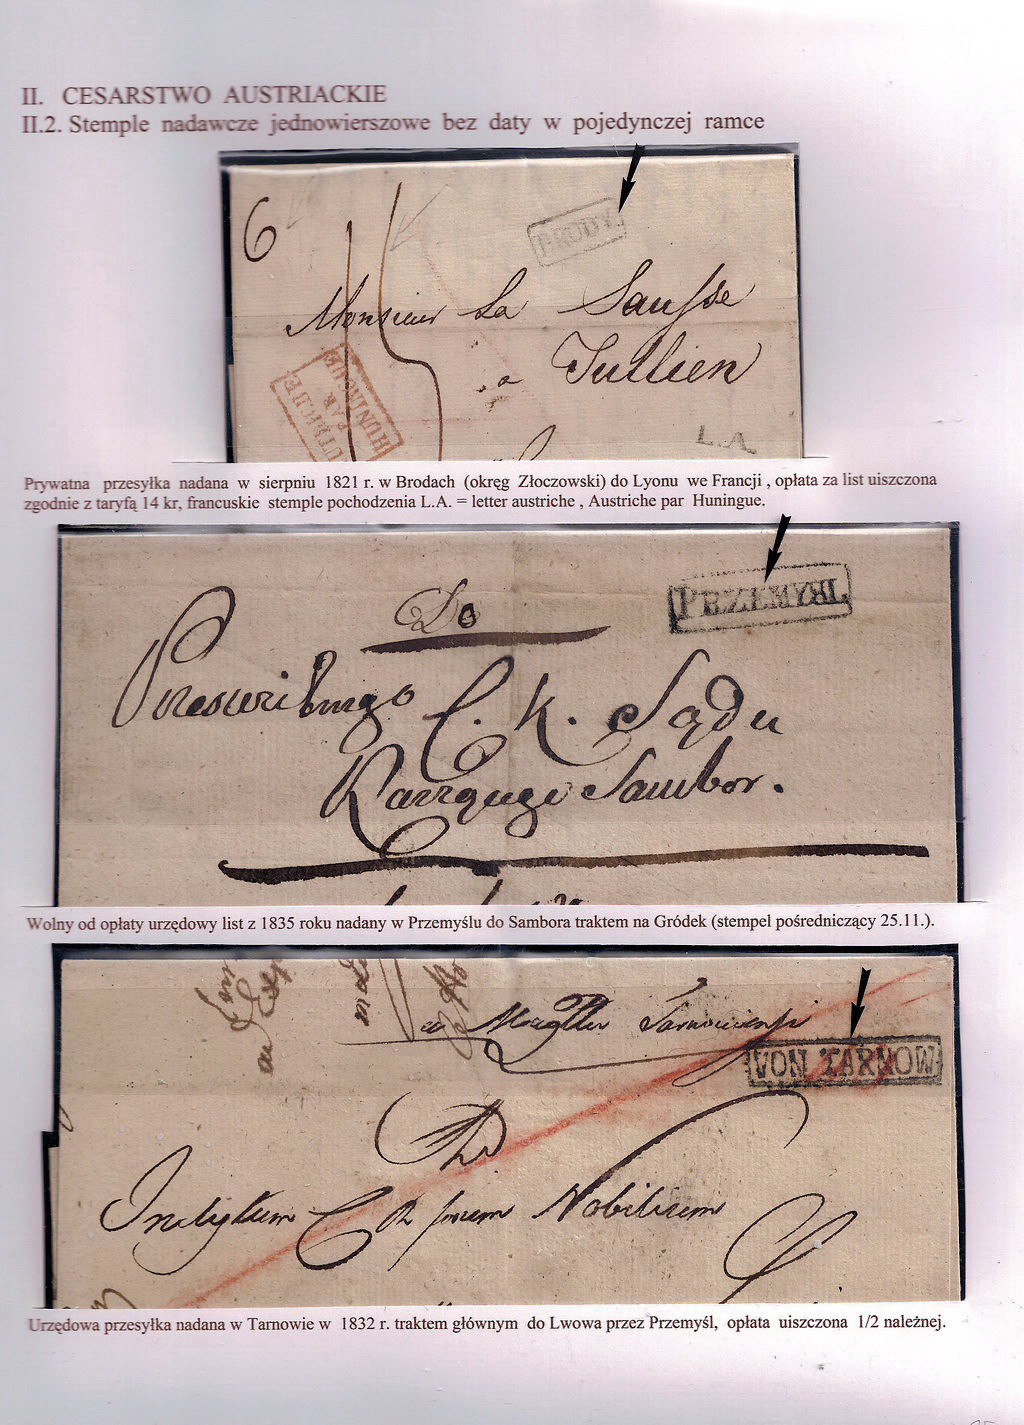 II. CESARSTWO AUSTRIACKIE
II.2. Stemple nadawcze jednowierszowe bez daty w pojedynczej ramce
6
BRODY.
Monsieur La Sausse
a Jullien
HUNINGUE
PAR
L.A.
Prywatna przesyłka nadana w sierpniu 1821 r. w Brodach (okręg Złoczowski) do Lyonu we Francji , opłata za list uiszczona
zgodnie z taryfą 14 kr, francuskie stemple pochodzenia L.A. = letter austriche , Austriche par Huningue.
PRZEMYSL
Do
C. K. Sądu
Sambor.
Wolny od opłaty urzędowy list z 1835 roku nadany w Przemyślu do Sambora traktem na Gródek (stempel pośredniczący 25.11.).
VON TARNOW
Ad
Inclytum C R forum Nobilium
Urzędowa przesyłka nadana w Tarnowie w 1832 r. traktem głównym do Lwowa przez Przemyśl, opłata uiszczona 1/2 należnej.